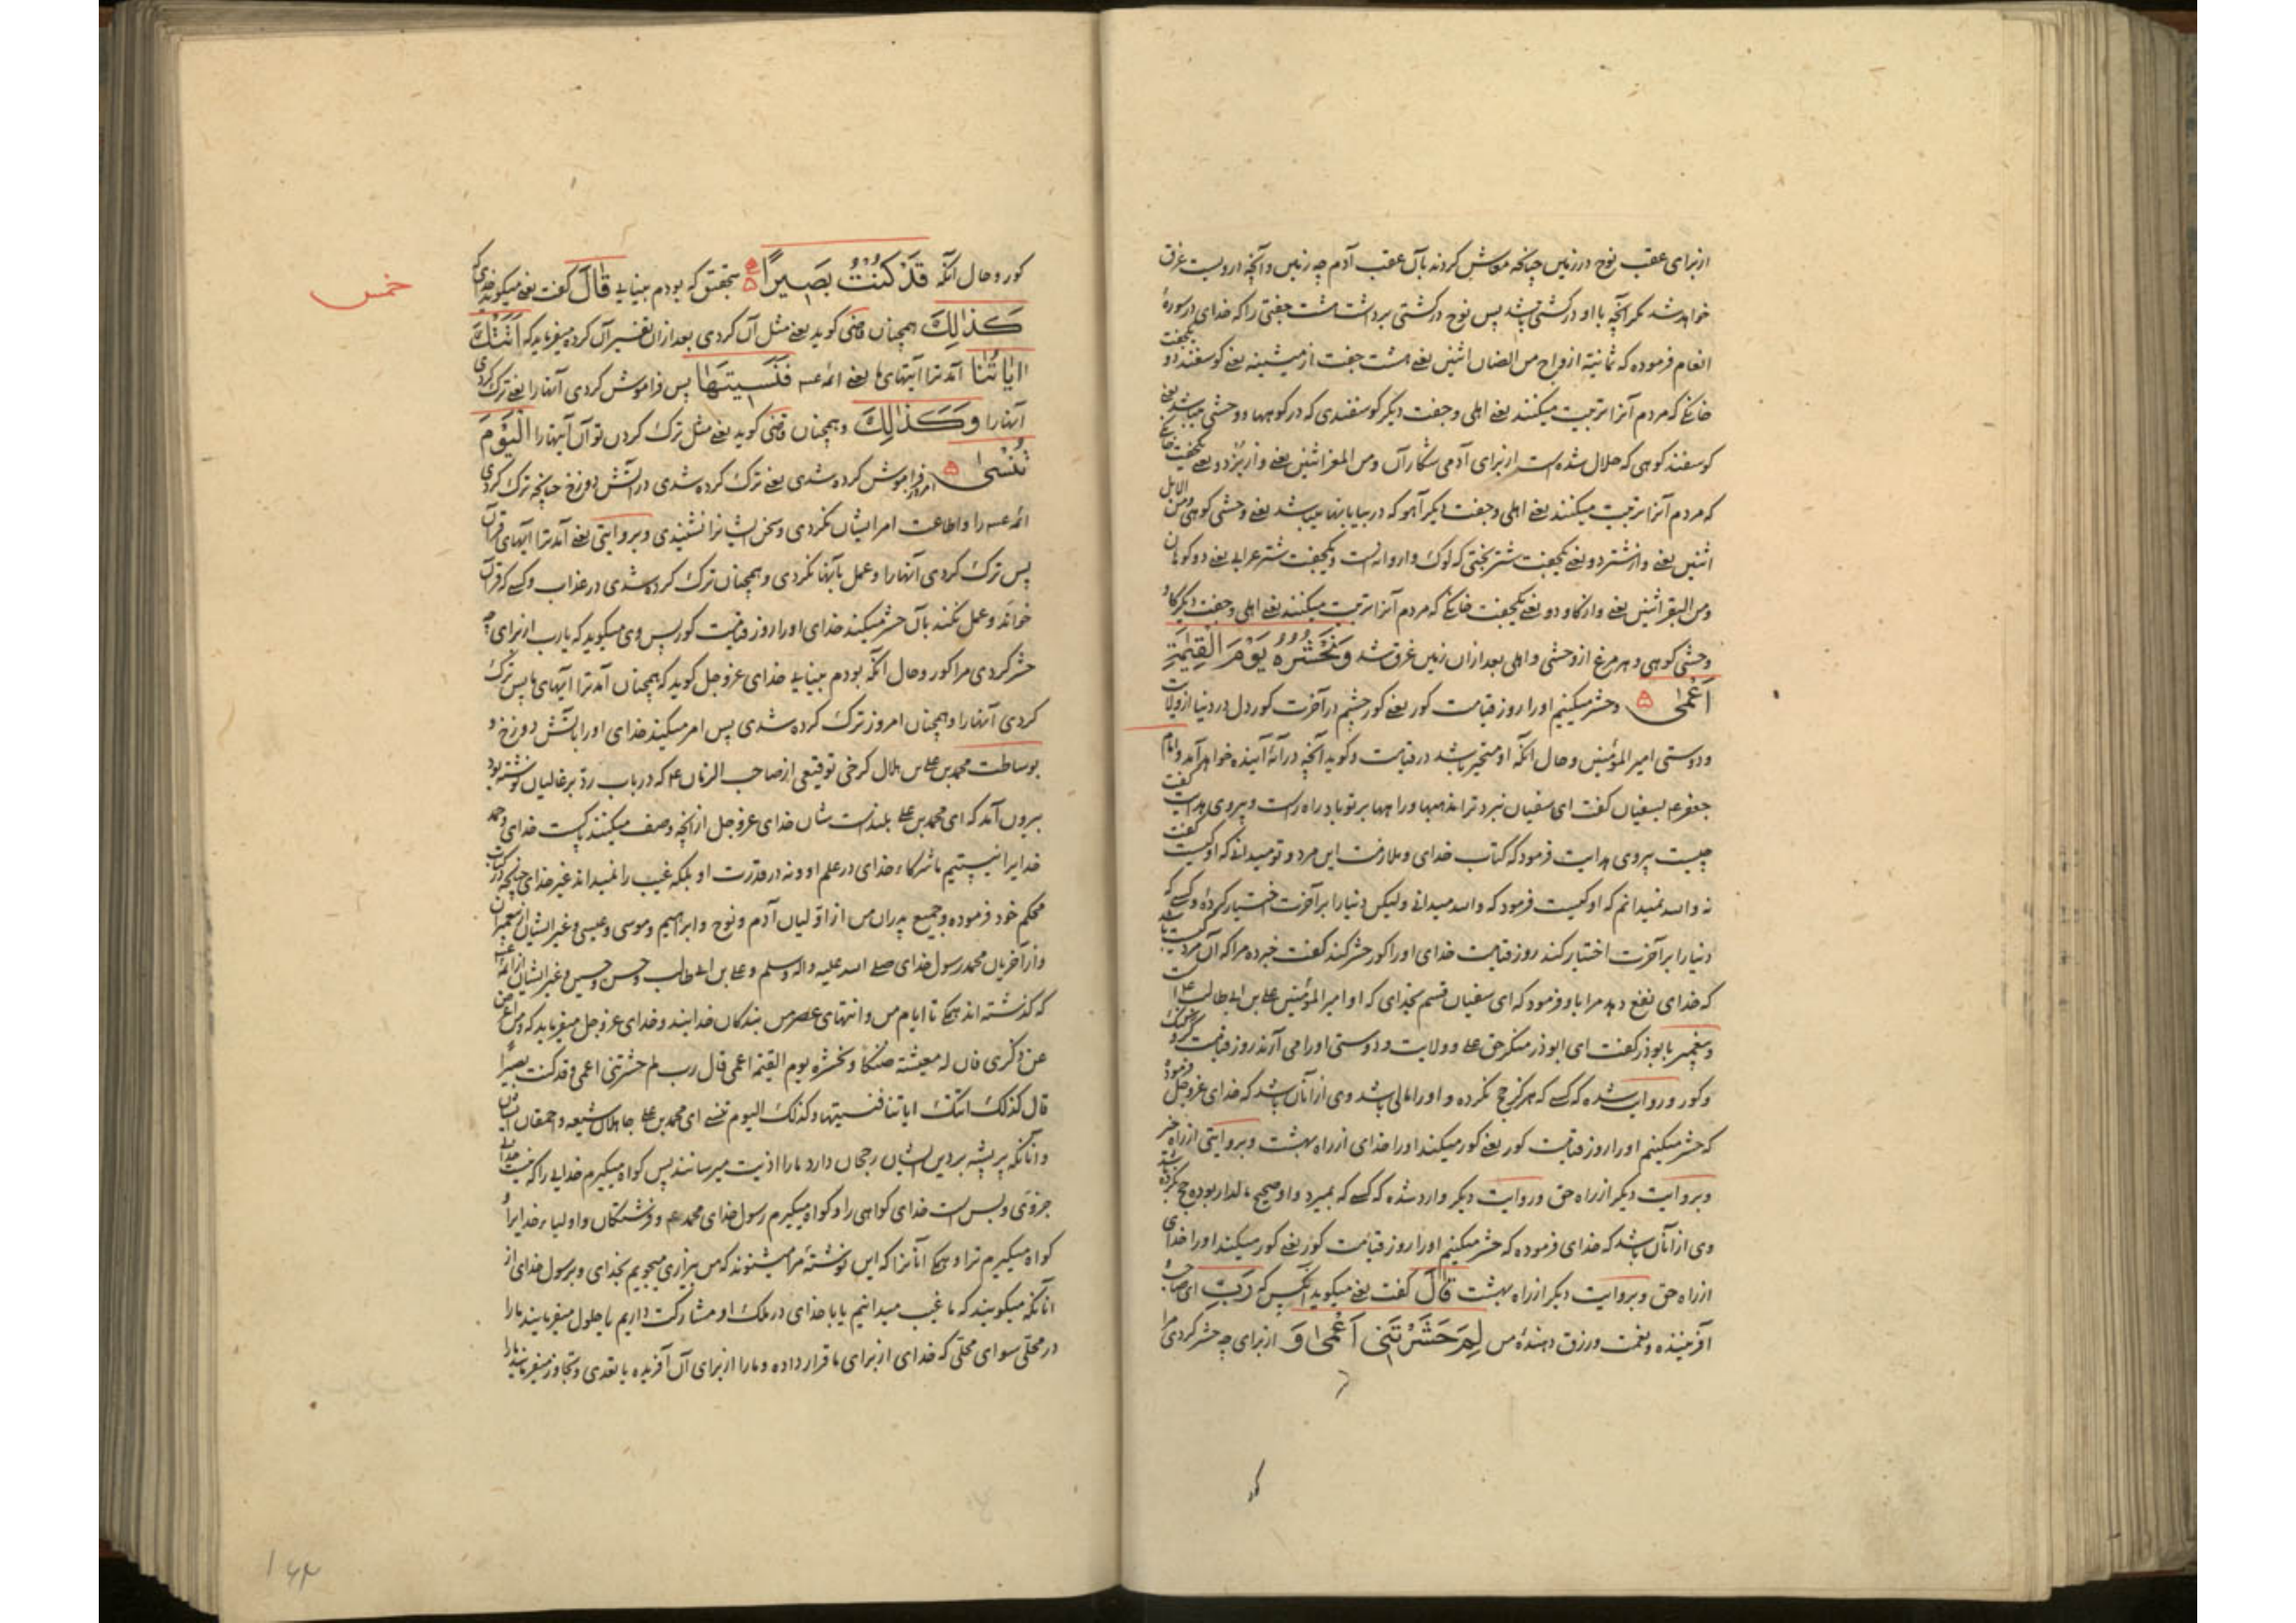 ازبرای عقب نوح در زمین چنانچه معاش کردند بآن عقب آدم چه زمین و آنچه در اوست غرق
خواهد شد مگر آنچه با او در کشتی باشد پس نوح در کشتی برداشت هشت جفتی را که خدای در سورهٔ
انعام فرموده که ثمانیة ازواج من الضان اثنین یعنی هشت جفت از میشینه یعنی کوسفند دو یکجفت
خانکی که مردم آنرا تربیت میکنند یعنی اهلی و جفت دیگر کوسفندی که در کوهها و وحشی میباشد یعنی
کوسفند کوهی که حلال شده است از برای آدمی شکار آن و من المعز اثنین یعنی و از بز دو یعنی یکجفت خانکی
که مردم آنرا تربیت میکنند یعنی اهلی و جفت دیگر آهو که در بیابانها میباشد یعنی وحشی کوهی و من الابل
اثنین یعنی و از شتر دو یعنی یکجفت شتر بختی که لوک و اروانه است و یکجفت شتر عرابی یعنی دو کوهان
و من البقر اثنین یعنی و از کاو دو یعنی یکجفت خانکی که مردم آنرا تربیت میکنند یعنی اهلی و جفت دیگر کاو
وحشی کوهی و هر مرغ از وحشی و اهلی بعد از ان زمین غرق شد وَنَحْشُرُهُ یَوْمَ الْقِیٰمَةِ
اَعْمٰی ۵ و حشر میکنیم او را روز قیامت کور یعنی کور چشم در آخرت کور دل در دنیا از ولایت
و دوستی امیر المؤمنین و حال انکه او متحیر باشد در قیامت و کوید آنچه در آیهٔ آینده خواهد آمد و امام
جعفر عم بسفیان کفت ای سفیان نبرد ترا مذهبها و راهها بر تو باد راه راست و پیروی هدایت کفت
چیست پیروی هدایت فرمود که کتاب خدای و ملازمت این مرد و تو میدانی که او کیست کفت
نه والله نمیدانم که او کیست فرمود که والله میدانی ولیکن دنیا را بر آخرت اختیار کردهٔ و کسی که
دنیا را بر آخرت اختیار کند روز قیامت خدای او را کور حشر کند کفت خبر ده مرا که آن مرد کیست شاید
که خدای نفع دهد مرا باو فرمود که ای سفیان قسم بخدای که او امیر المؤمنین علی بن ابیطالب است
و پیغمبر بابوذر کفت ای ابوذر منکر حق علی و ولایت و دوستی او را می آرند روز قیامت کر و کنک
و کور و روایت شده که کسی که هرکز حج نکرده و او را مالی باشد وی از آنان باشد که خدای عزوجل فرموده
که حشر میکنیم او را روز قیامت کور یعنی کور میکند او را خدای از راه بهشت و بروایتی از راه خیر
و بروایت دیگر از راه حق و روایت دیگر وارد شده که کسی که بمیرد و او صحیح مالدار بوده حج نکرده باشد
وی از آنان باشد که خدای فرموده که حشر میکنیم او را روز قیامت کور یعنی کور میکند او را خدای
از راه حق و بروایت دیگر از راه بهشت قَالَ کفت یعنی میکوید آنکس که رَبِّ ای صاحب
آفریننده و نعمت و رزق دهندهٔ من لِمَ حَشَرْتَنِی اَعْمٰی وَ از برای چه حشر کردی مرا
کور
کور و حال انکه قَدْ کُنْتُ بَصِیرًا ۵ بتحقیق که بودم بینایی قَالَ کفت یعنی میکوید خدای که
خمس
کَذٰلِکَ همچنان قاضی کوید یعنی مثل آن کردی بعد از ان تفسیر آن کرده میفرماید که اَتَتْکَ
اٰیَاتُنَا آمد ترا آیتهای ما یعنی ائمه عم فَنَسِیتَهَا پس فراموش کردی آنها را یعنی ترک کردی
آنها را وَکَذٰلِکَ و همچنان قاضی کوید یعنی مثل ترک کردن تو آن آیتها را الْیَوْمَ
تُنْسٰی ۵ امروز فراموش کرده شدی یعنی ترک کرده شدی در آتش دوزخ چنانچه ترک کردی
ائمه عم را و اطاعت امر ایشان نکردی و سخن ایشانرا نشنیدی و بروایتی یعنی آمد ترا آیهای قرآن
پس ترک کردی آنها را و عمل بآنها نکردی و همچنان ترک کرده شدی در عذاب و کسی که قرآن
خواند و عمل نکند بآن حشر میکند خدای او را روز قیامت کور پس وی میکوید که یا رب از برای چه
حشر کردی مرا کور و حال انکه بودم بینایی خدای عزوجل کوید که همچنان آمد ترا آیهای ما پس ترک
کردی آنها را و همچنان امروز ترک کرده شدی پس امر میکند خدای او را بآتش دوزخ و
بوساطت محمد بن علی بن هلال کرخی توقیعی از صاحب الزمان عم که در باب رد بر غالیان نوشته بود
بیرون آمد که ای محمد بن علی بلند است شان خدای عزوجل از آنچه وصف میکنند پاکست خدای و حمد
خدایرا نیستیم ما شرکاء خدای در علم او و نه در قدرت او بلکه غیب را نمیداند غیر خدای چنانچه در کتاب
محکم خود فرموده و جمیع پدران من از اولیان آدم و نوح و ابراهیم و موسی و عیسی و غیر ایشان از پیغمبران
و از آخریان محمد رسول خدای صلی الله علیه واله وسلم و علی بن ابیطالب و حسن و حسین و غیر ایشان از ائمه
که گذشته اند همکی تا ایام من و انتهای عصر من بندکان خدایند و خدای عزوجل میفرماید که و من اعرض
عن ذکری فان له معیشة ضنکا و نحشره یوم القیمة اعمی قال رب لم حشرتنی اعمی و قد کنت بصیرا
قال کذلک اتتک ایاتنا فنسیتها و کذلک الیوم تنسی ای محمد بن علی جاهلان شیعه و احمقان ایشان
و آنانکه پر پشه بر دین ایشان رجحان دارد ما را اذیت میرسانند پس کواه میکیرم خدایی را که نیست خدایی
جز وی و بس است خدای کواهی را و کواه میکیرم رسول خدای محمد عم و فرشتکان و اولیاء خدایرا و
کواه میکیرم ترا و همکی آنانرا که این نوشتهٔ مرا میشنوند که من بیزاری میجویم بخدای و برسول خدای از
آنانکه میکویند که ما غیب میدانیم یا با خدای در ملک او مشارکت داریم یا حلول میفرمایند ما را
در محلی سوای محلی که خدای از برای ما قرار داده و ما را از برای آن آفریده یا تعدی و تجاوز میفرمایند ما را
۱۶۴